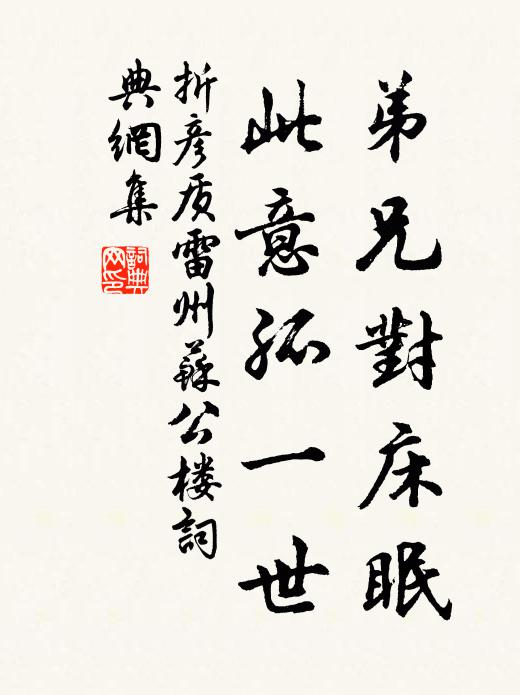 弟兄對床眠
此意孤一世
折彦质雷州蘇公楼詞
典網集
詞典網印